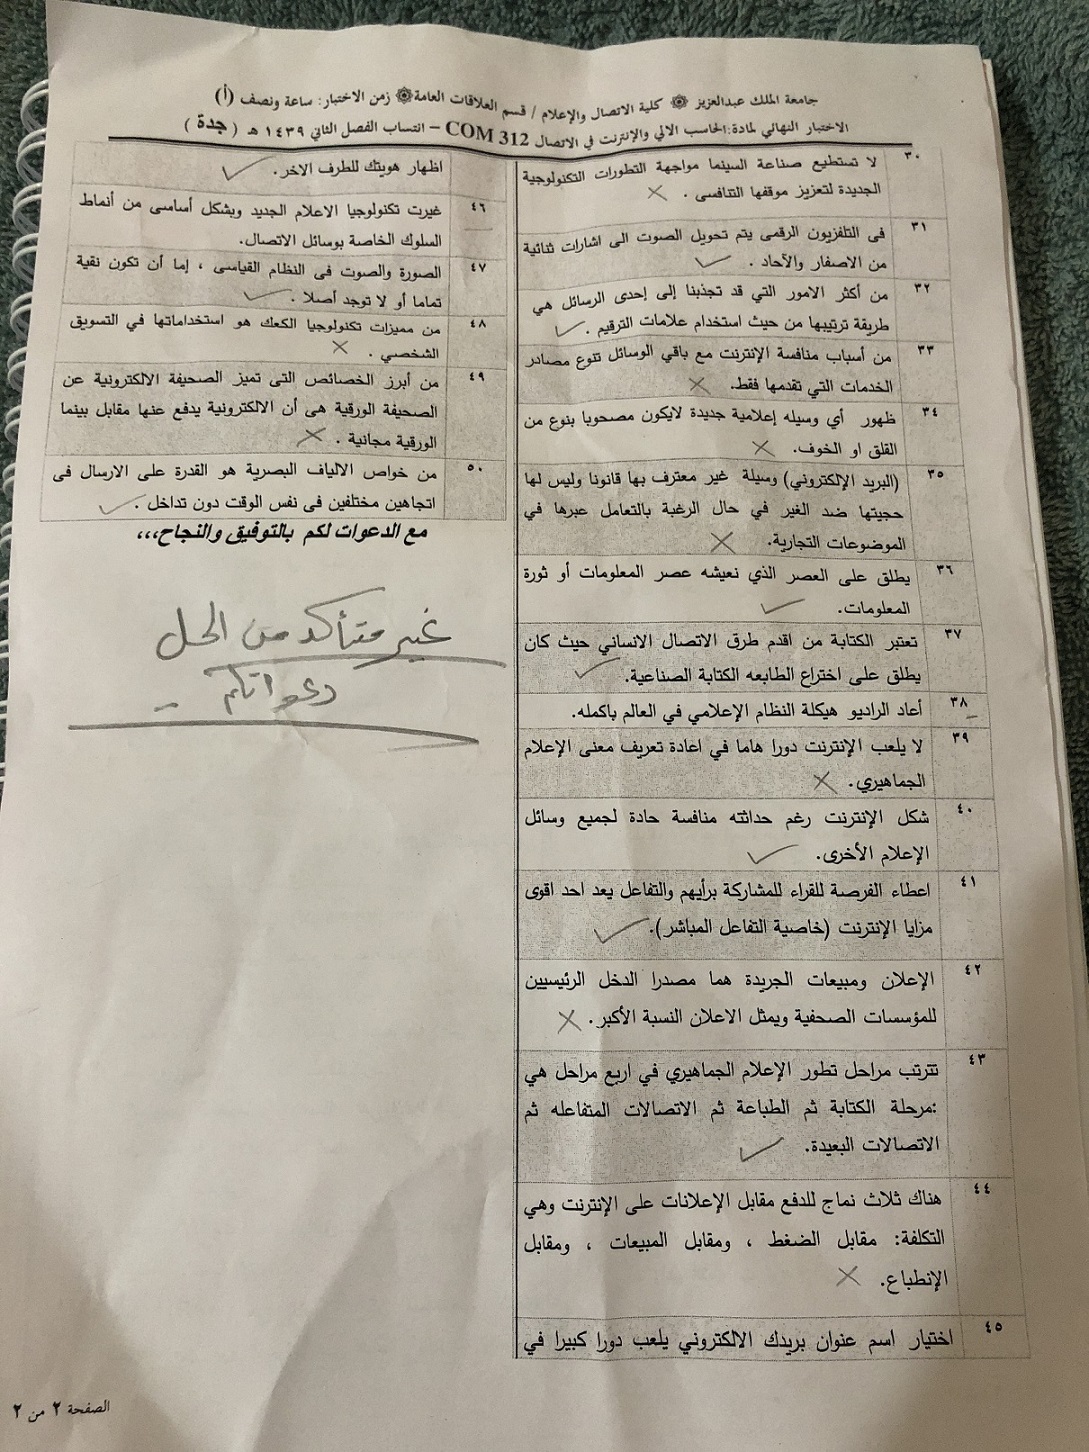 جامعة الملك عبدالعزيز ۞ كلية الاتصال والإعلام / قسم العلاقات العامة ۞ زمن الاختبار: ساعة ونصف (أ)
الاختبار النهائي لمادة:الحاسب الالي والإنترنت في الاتصال COM 312 – انتساب الفصل الثاني ١٤٣٩ هـ ( جدة )
٣٠ لا تستطيع صناعة السينما مواجهة التطورات التكنولوجية
الجديدة لتعزيز موقفها التنافسى . ✗
٣١ فى التلفزيون الرقمى يتم تحويل الصوت الى اشارات ثنائية
من الاصفار والآحاد . ✓
٣٢ من أكثر الامور التي قد تجذبنا إلى إحدى الرسائل هي
طريقة ترتيبها من حيث استخدام علامات الترقيم . ✓
٣٣ من أسباب منافسة الإنترنت مع باقي الوسائل تنوع مصادر
الخدمات التي تقدمها فقط. ✗
٣٤ ظهور أي وسيله إعلامية جديدة لايكون مصحوبا بنوع من
القلق او الخوف. ✗
٣٥ (البريد الإلكتروني) وسيلة غير معترف بها قانونا وليس لها
حجيتها ضد الغير في حال الرغبة بالتعامل عبرها في
الموضوعات التجارية. ✗
٣٦ يطلق على العصر الذي نعيشه عصر المعلومات أو ثورة
المعلومات. ✓
٣٧ تعتبر الكتابة من اقدم طرق الاتصال الانساني حيث كان
يطلق على اختراع الطابعه الكتابة الصناعية. ✓
٣٨ أعاد الراديو هيكلة النظام الإعلامي في العالم باكمله.
٣٩ لا يلعب الإنترنت دورا هاما في اعادة تعريف معنى الإعلام
الجماهيري. ✗
٤٠ شكل الإنترنت رغم حداثته منافسة حادة لجميع وسائل
الإعلام الأخرى. ✓
٤١ اعطاء الفرصة للقراء للمشاركة برأيهم والتفاعل يعد احد اقوى
مزايا الإنترنت (خاصية التفاعل المباشر). ✓
٤٢ الإعلان ومبيعات الجريدة هما مصدرا الدخل الرئيسيين
للمؤسسات الصحفية ويمثل الاعلان النسبة الأكبر. ✗
٤٣ تترتب مراحل تطور الإعلام الجماهيري في اربع مراحل هي
:مرحلة الكتابة ثم الطباعة ثم الاتصالات المتفاعله ثم
الاتصالات البعيدة. ✓
٤٤ هناك ثلاث نماج للدفع مقابل الإعلانات على الإنترنت وهي
التكلفة: مقابل الضغط ، ومقابل المبيعات ، ومقابل
الإنطباع. ✗
٤٥ اختيار اسم عنوان بريدك الالكتروني يلعب دورا كبيرا في
اظهار هويتك للطرف الاخر. ✓
٤٦ غيرت تكنولوجيا الاعلام الجديد وبشكل أساسى من أنماط
السلوك الخاصة بوسائل الاتصال.
٤٧ الصورة والصوت فى النظام القياسى ، إما أن تكون نقية
تماما أو لا توجد أصلا . ✓
٤٨ من مميزات تكنولوجيا الكعك هو استخداماتها في التسويق
الشخصي . ✗
٤٩ من أبرز الخصائص التى تميز الصحيفة الالكترونية عن
الصحيفة الورقية هى أن الالكترونية يدفع عنها مقابل بينما
الورقية مجانية . ✗
٥٠ من خواص الالياف البصرية هو القدرة على الارسال فى
اتجاهين مختلفين فى نفس الوقت دون تداخل . ✓
مع الدعوات لكم بالتوفيق والنجاح،،،
غير متأكد من الحل
دعواتكم
الصفحة ٢ من ٢